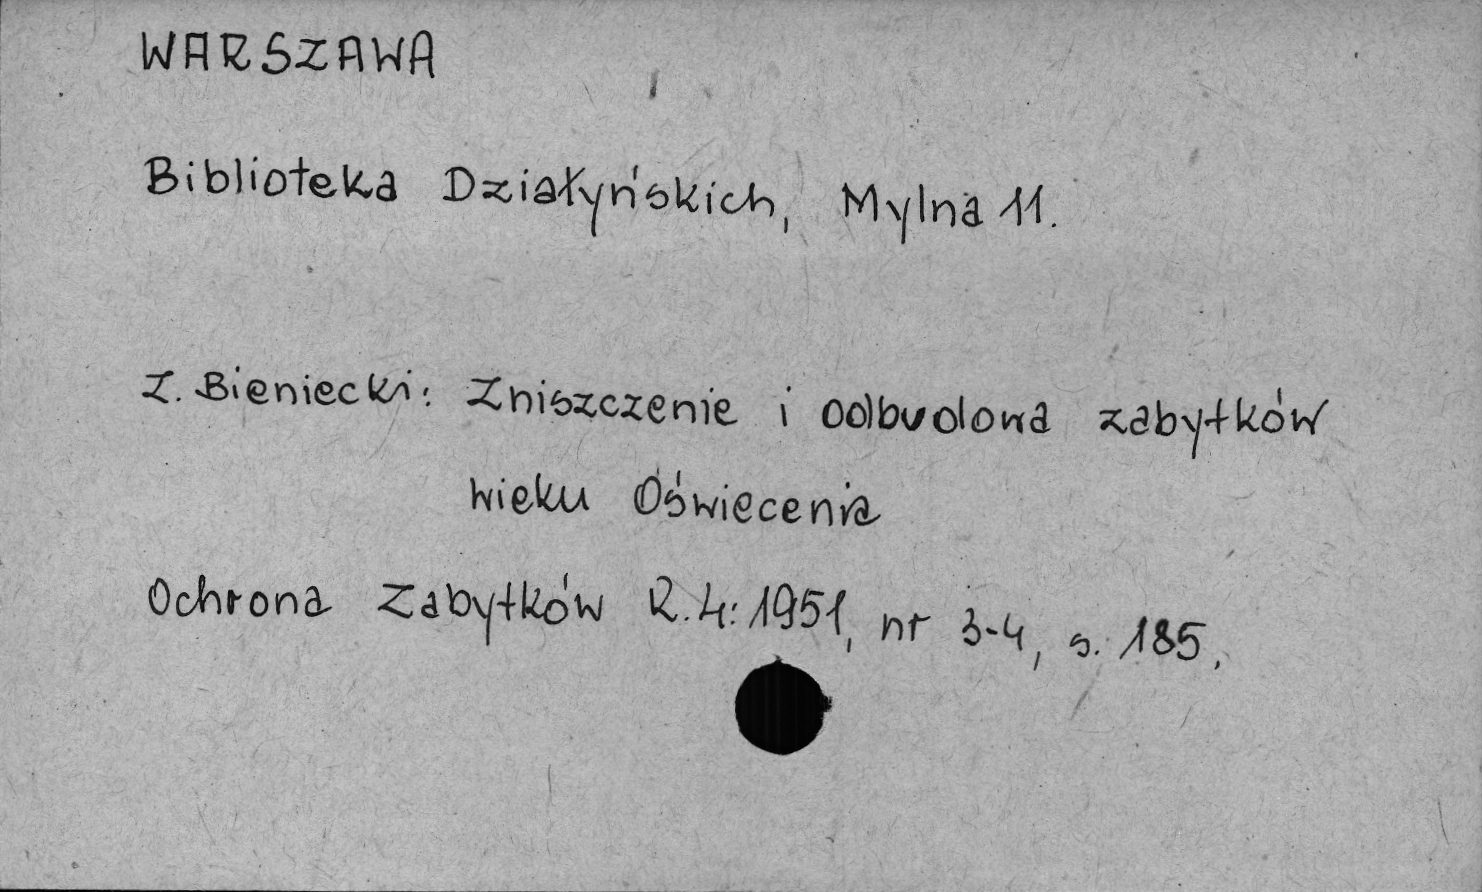 WARSZAWA
Biblioteka Działyńskich, Mylna 11.
Z. Bieniecki: Zniszczenie i odbudowa zabytków
wieku Oświecenia
Ochrona Zabytków R.4:1951, nr 3-4, s. 185.